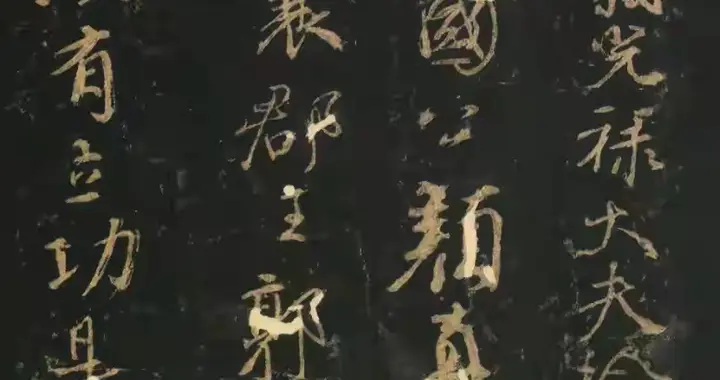 光祿大夫
國公顏真
襄郡王郭
有立功是